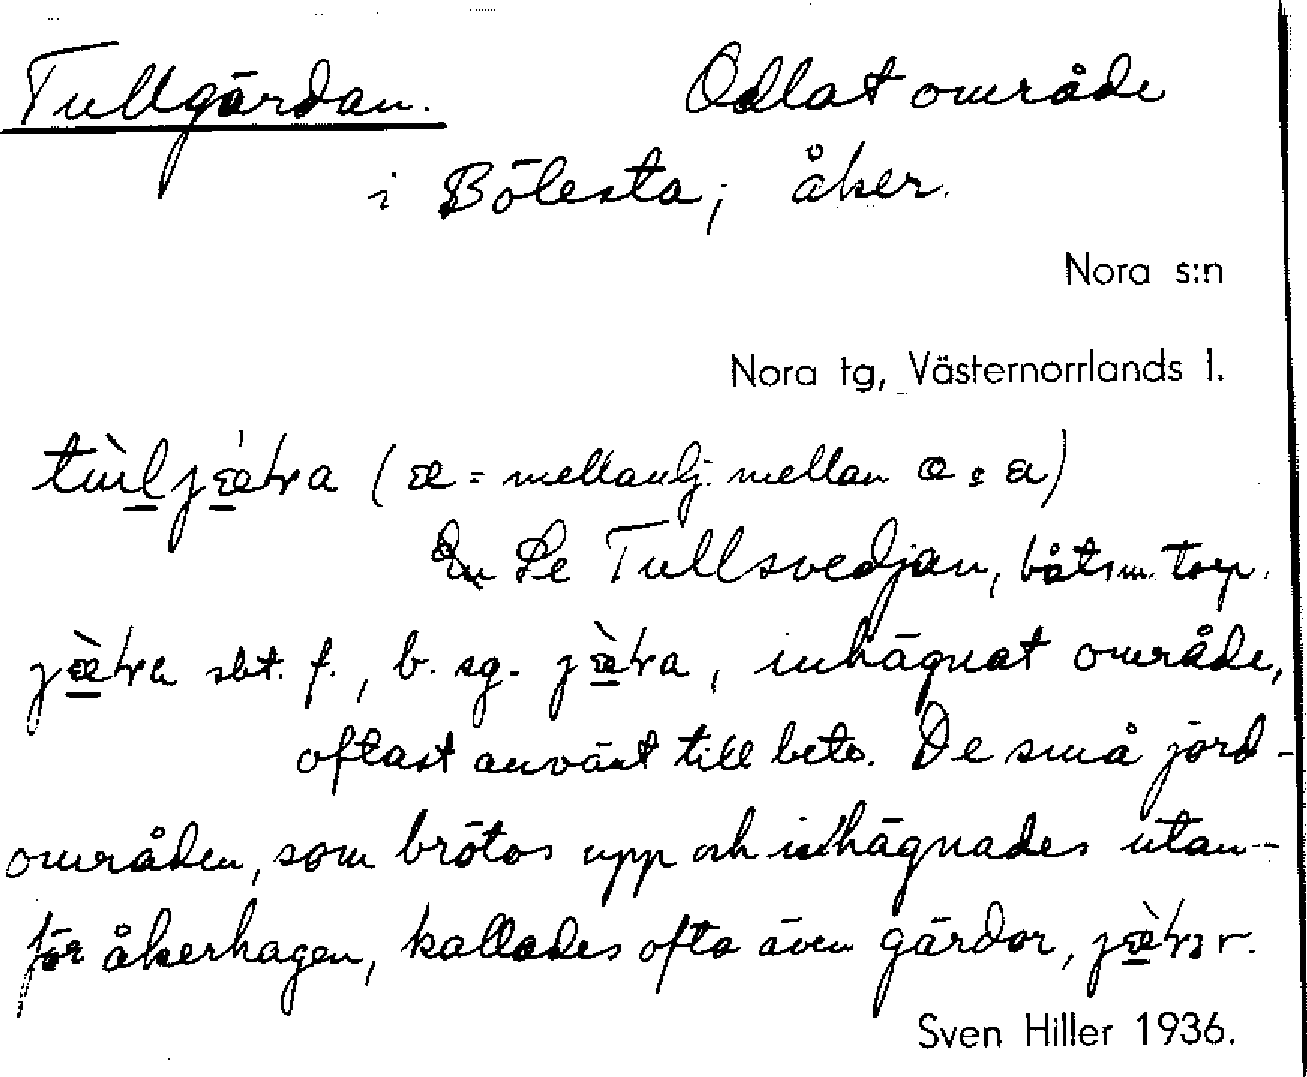 Tullgärdan. Odlat område
i Bölesta; åker.
Nora s:n
Nora tg, Västernorrlands l.
(æ = mellanlj. mellan
Se Tullsvedjan, båtsm. torp.
sbt. f., b. sg. inhägnat område,
oftast använt till bete. De små jord-
områden, som brötos upp och inhägnades utan-
för åkerhagen, kallades ofta även gärdor,
Sven Hiller 1936.